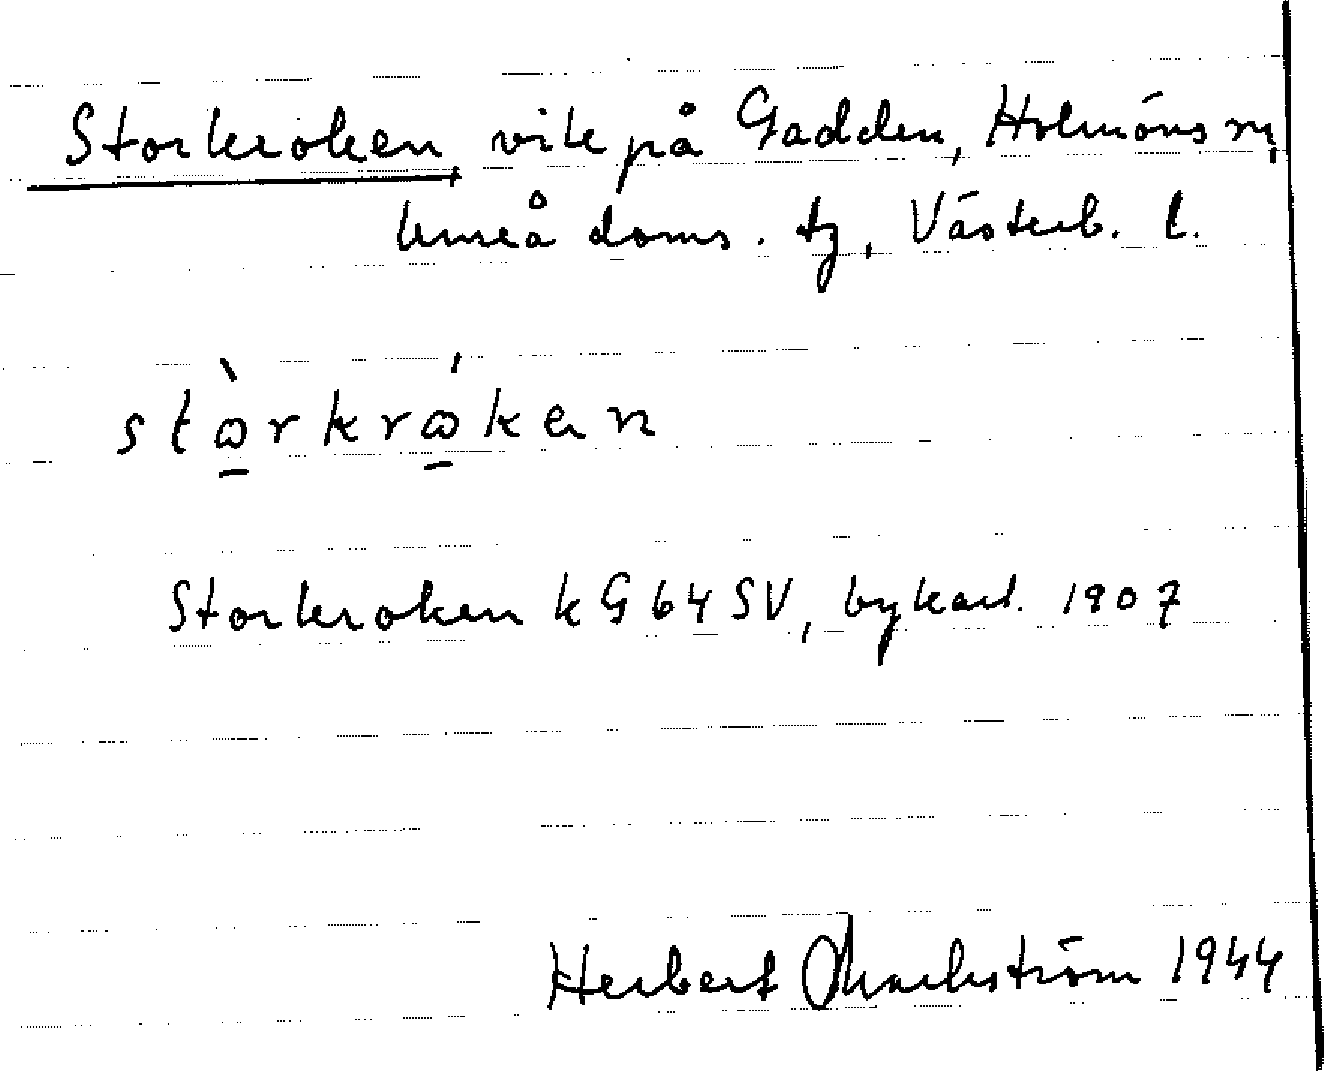 Storkroken, vik på Gadden, Holmöns sn,
Umeå doms. tg, Västerb. l.
stòrkróken
Storkroken kG 64 SV, bykart. 1907
Herbert Markström 1944